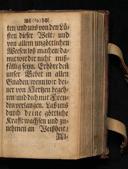 ten und uns von den Lü-
sten dieser Welt / und
von allem ungöttlichen
Wesen los machen / da-
mit wir dir nicht miß-
fällig seyn. Erhöre doch
unser Gebet in allen
Gnaden / wenn wir dei-
ner von Hertzen begeh-
ren / und dich mit
verlangen. Laß uns
durch deine göttliche
Krafft wachsen und zu-
nehmen an Weißheit /